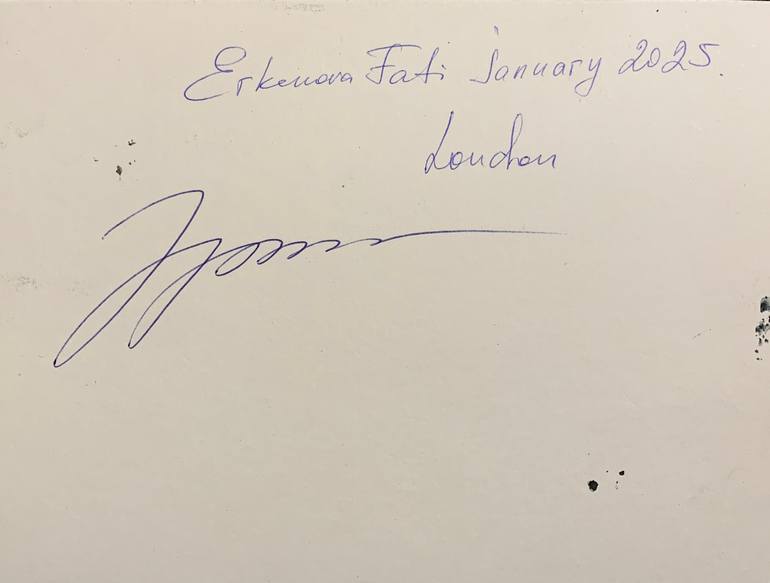 Erkenova Fati January 2025.
London